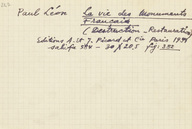 Paul Léon La vie des Monuments
Français
(Destruction_Restauration)
Editions A. et J. Picard et Cie Paris 1951
584 - 20 fig: